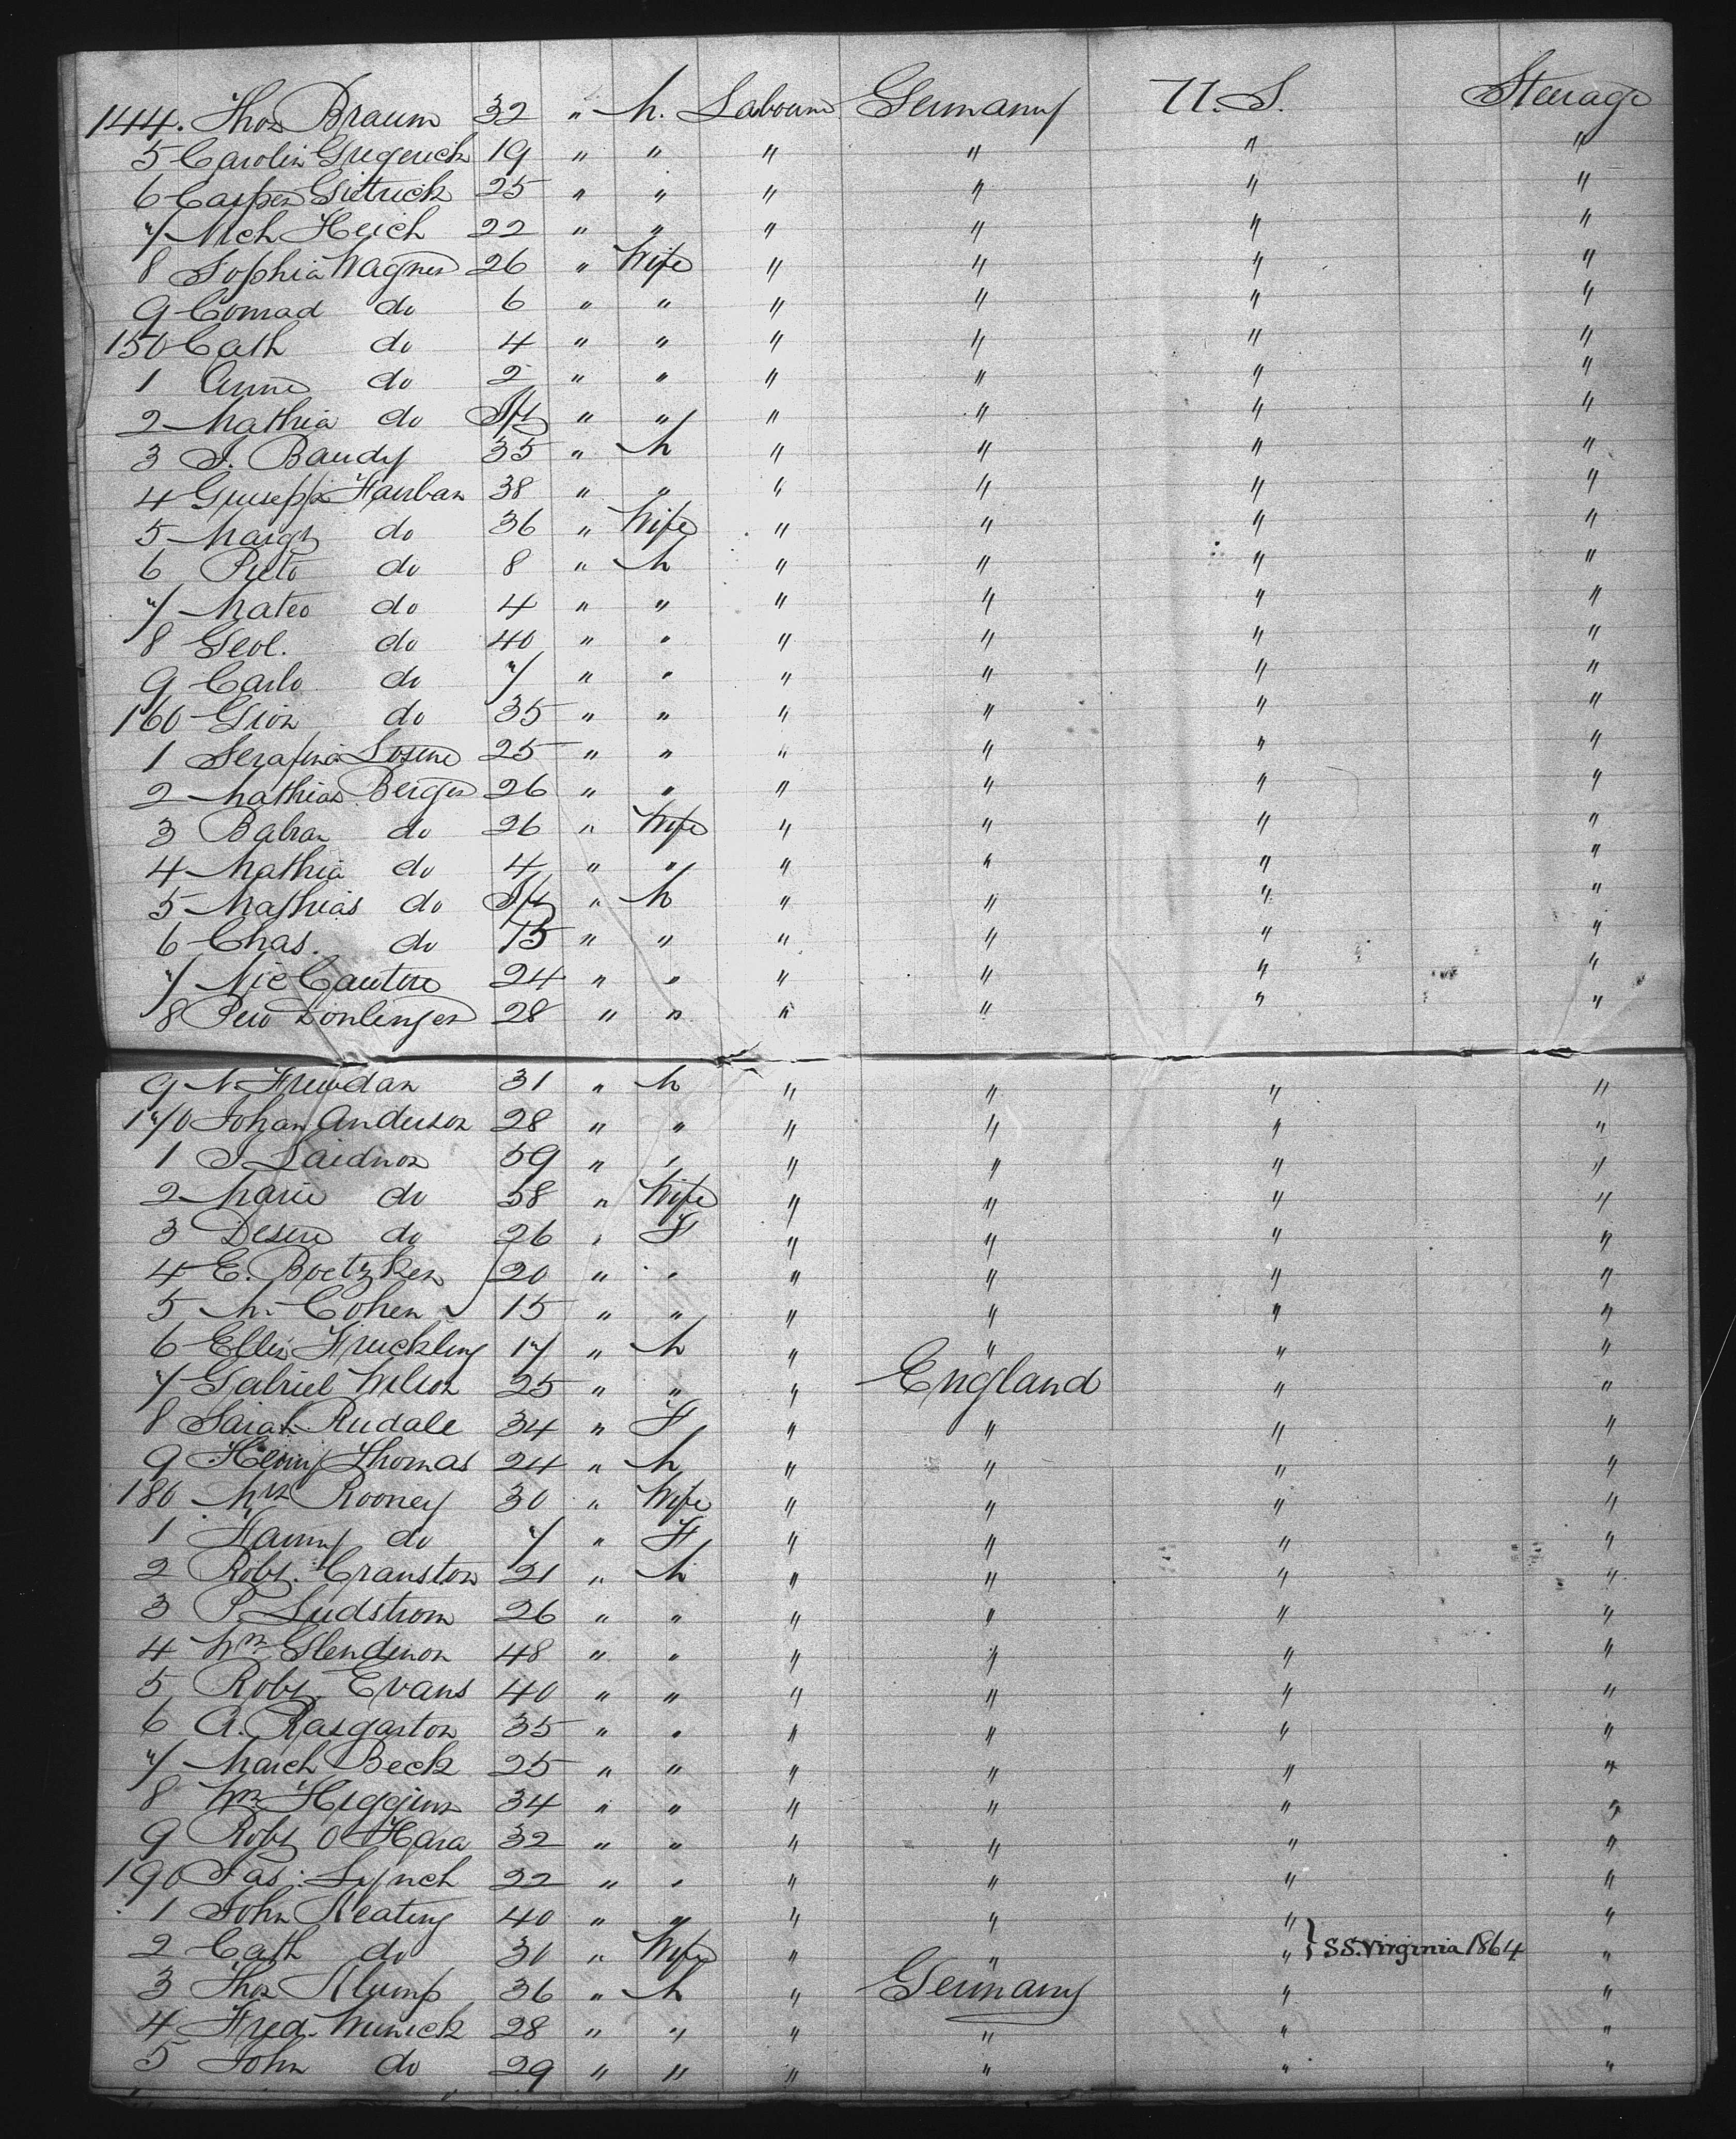 144. Thos Braum 32 " M. Labourer Germany U.S. Steerage
5 Carolin Gregerick 19 " " " " " "
6 Casper Gietrick 25 " " " " " "
7 Mch Heich 22 " " " " " "
8 Sophia Wagner 26 " Wife " " " "
9 Conrad do 6 " " " " " "
150 Cath do 4 " " " " " "
1 Anne do 2 " " " " " "
2 Mathia do Inft " " " " " "
3 J. Baudy 35 " M " " " "
4 Guiseppi Fairban 38 " " " " " "
5 Margt do 36 " Wife " " " "
6 Pieto do 8 " M " " " "
7 Mateo do 4 " " " " " "
8 Geol. do 40 " " " " " "
9 Carlo do 7 " " " " " "
160 Gion do 35 " " " " " "
1 Serafina Losene 25 " " " " " "
2 Mathias Berger 26 " " " " " "
3 Balran do 26 " Wife " " " "
4 Mathia do 4 " " " " " "
5 Mathias do Inft " M " " " "
6 Chas. do 75 " " " " " "
7 Nic Cautere 24 " " " " " "
8 Peter Donlinger 28 " " " " " "
9 N Freudan 31 " M " " " "
170 Johan Anderson 28 " " " " " "
1 J Laidnon 59 " " " " " "
2 Marie do 58 " Wife " " " "
3 Desere do 26 " F " " " "
4 E. Boetzken 20 " " " " " "
5 M. Cohen 15 " " " " " "
6 Ellis Fruckling 17 " M " " " "
7 Gabriel Wilson 25 " " " England " "
8 Sarah Rudale 34 " F " " " "
9 Henry Thomas 24 " M " " " "
180 Mrs Rooney 30 " Wife " " " "
1 Fanny do 7 " F " " " "
2 Robt. Cranston 21 " M " " " "
3 P. Ludstrom 26 " " " " " "
4 Wm Glendinon 48 " " " " " "
5 Robt. Evans 40 " " " " " "
6 A. Rasgarton 35 " " " " " "
7 March Beck 25 " " " " " "
8 Wm Higgins 34 " " " " " "
9 Robt O Hara 32 " " " " " "
190 Jas: Lynch 22 " " " " " "
1 John Keating 40 " " " " " "
2 Cath do 30 " Wife " " " } S.S. Virginia 1864 "
3 Thos Klump 36 " M " Germany " "
4 Fred. Winick 28 " " " " " "
5 John do 29 " " " " " "